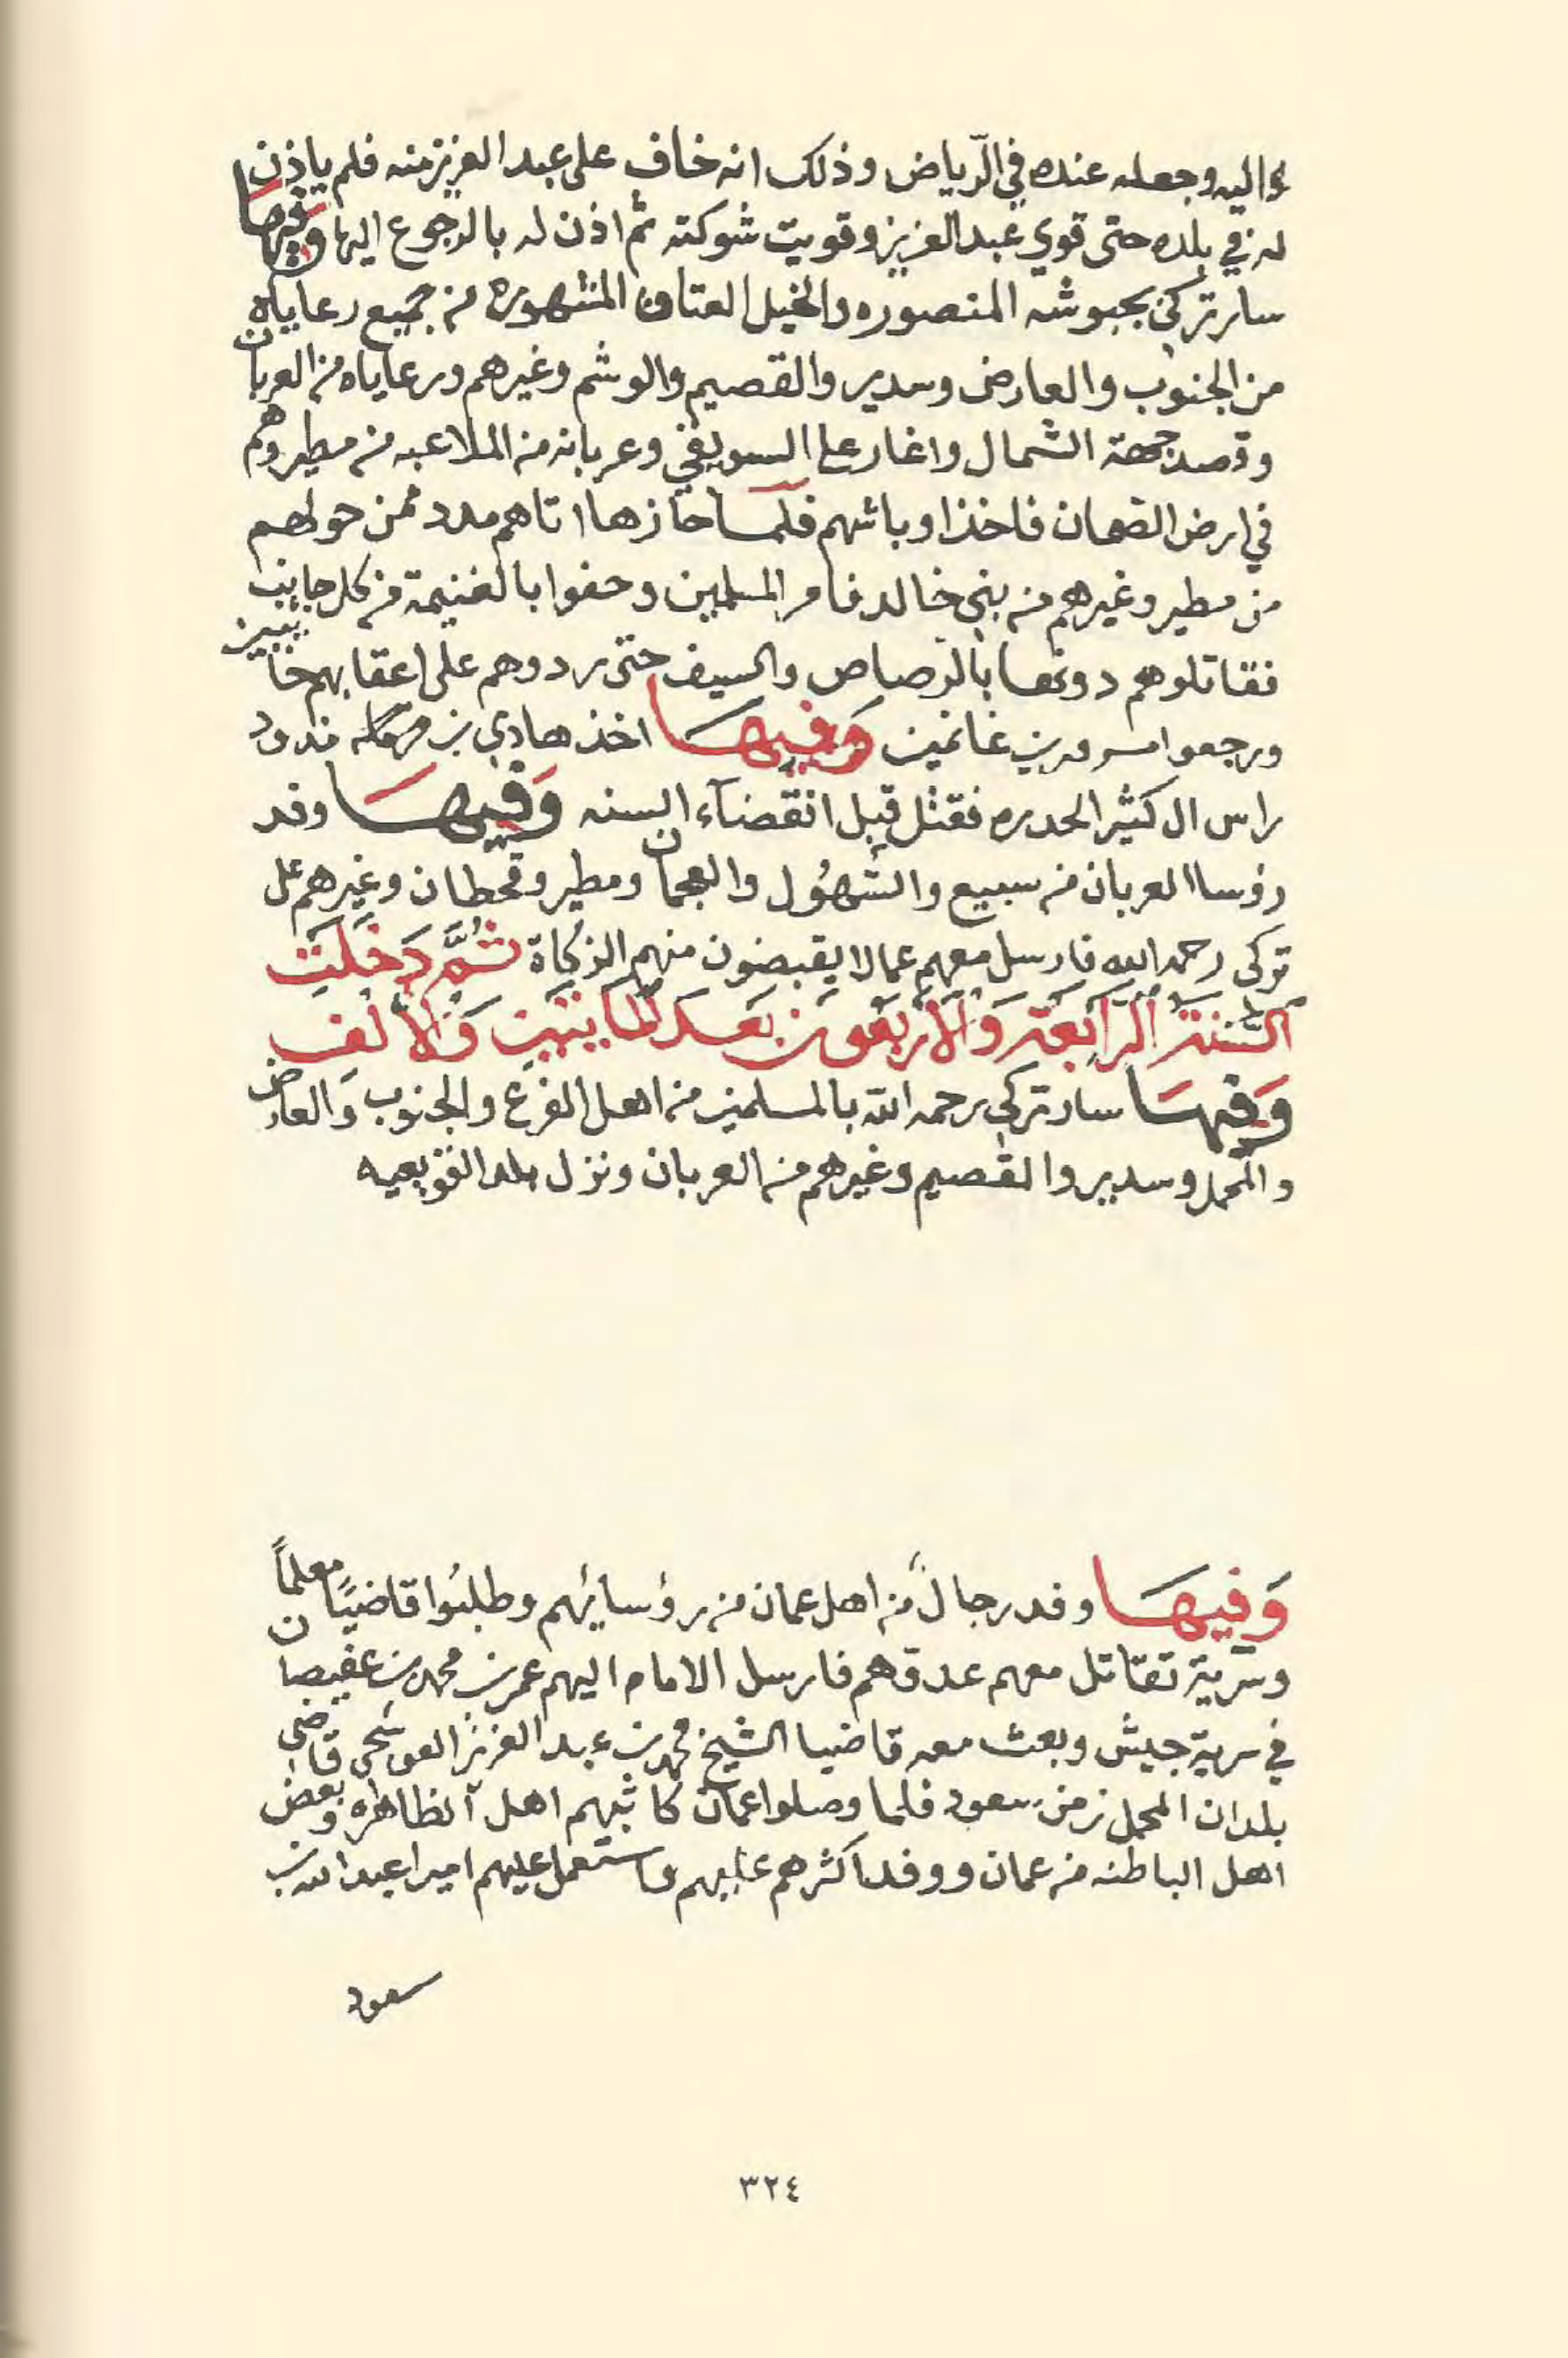 اليه وجعله عنده في الرياض وذلك انه خاف على عبد العزيز منه فلم ياذن
له في بلده حتى قوي عبد العزيز وقويت شوكته ثم اذن له بالرجوع اليها وفيها
سار تركي بجيوشه المنصوره والخيل العتاق المشهوره من جميع رعاياه
من الجنوب والعارض وسدير والقصيم والوشم وغيرهم ورعاياه من العربان
وقصد جهة الشمال واغار على السويفي وعربانه من الملاعبه من مطير وهم
في ارض الصمان فاخذ اوباشهم فلما حازها اتاهم مدد ممن حولهم
من مطير وغيرهم من بني خالد فامر المسلمين وحفوا بالغنيمة من كل جانب
فقاتلوهم دونها بالرصاص والسيف حتى ردوهم على اعقابهم خائبين
ورجعوا مسرورين غانمين وَفيهَا اخذ هادي بن
راس ال كثير الحدره فقتل قبل انقضآء السنه وَفيهَا وفد
رؤسا العربان من سبيع والسُّهُول والعجمان ومطير وقحطان وغيرهم على
تركي رحمه الله فارسل معهم عمالا يقبضون منهم الزكاة ثُمَّ دَخَلَتِ
السَّنَةُ الرَّابِعَة وَالأرْبَعُون بَعدَ المايتَيْن وَالألْف
وَفيهَا سار تركي رحمه الله بالمسلمين من اهل الفرع والجنوب والعارض
والمحمل وسدير والقصيم وغيرهم من العربان ونزل بلد القويعيه
وَفيهَا وفد رجالٌ من اهل عمان من رؤسايئهم وطلبُوا قاضيًا معلماً
وسرية تقاتل معهم عدوهم فارسل الامام اليهم عمر بن محمد بن عفيصان
في سرية جيش وبعث معه قاضيا الشيخ محمد بن عبد العزيز العوسجي قاضي
بلدان المحمل زمن سعود فلما وصلوا عمان كاتبهم اهل الظاهره وبعض
اهل الباطنه من عمان ووفد اكثرهم عليهم واستعمل عليهم اميرا عبد الله بن
سعود
٣٢٤